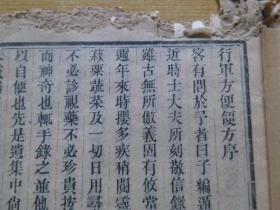 行軍方便便方序
客有問於予者曰子編循
近時士大夫所刻敬信錄
雖古無所倣義固有攸當
邇年來時攖多疾稍閱
菽粟蔬菜及一切日用尋
不必診視藥不必珍貴按
而神奇也輒手錄之並他
以自便也先是遺集中尙